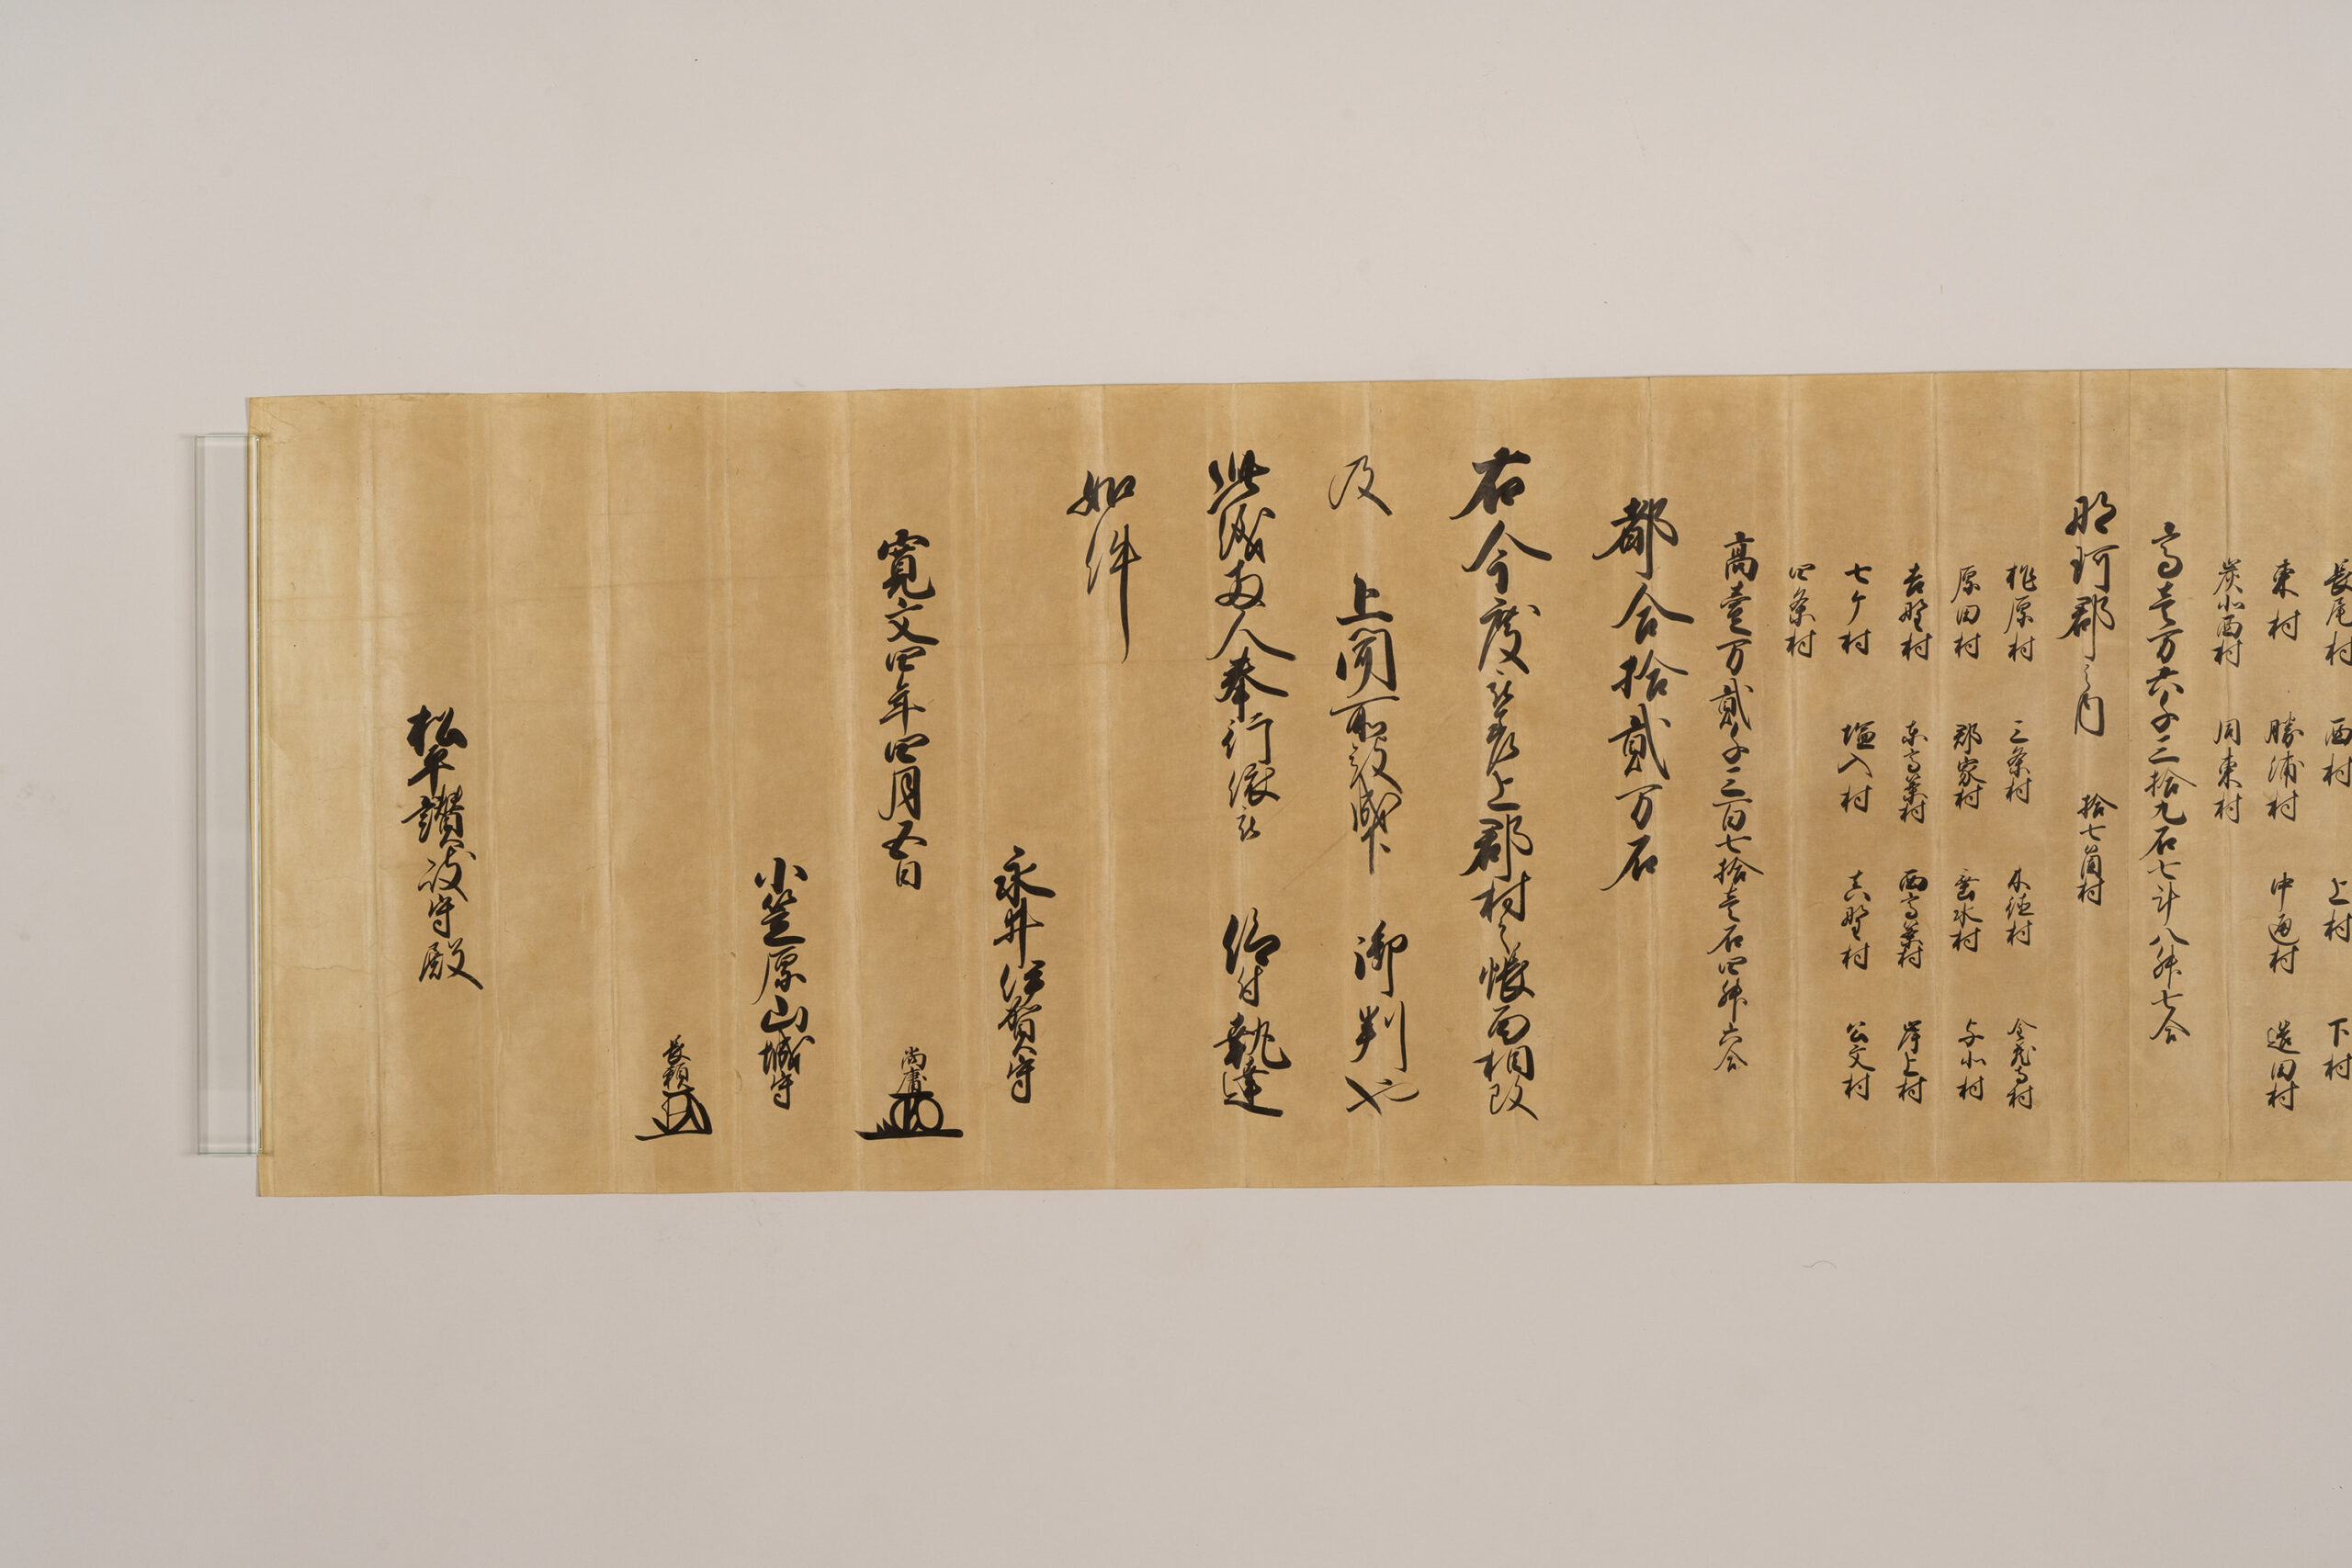 長尾村 西村 上村 下村
東村 勝浦村 中通村 造田村
炭所西村 同東村
高壱万六千三拾九石七斗八升七合
那珂郡之内 拾七箇村
櫛原村 三条村 木徳村 金蔵寺村
原田村 郡家村 垂水村 与北村
吉野村 東高篠村 西高篠村 岸上村
七ケ村 塩入村 真野村 公文村
四条村
高壱万弐千三百七拾壱石四升六合
都合拾弐万石
右今度被差上郡村之帳面相改
及 上聞所被成下 御判也
此儀両人奉行依被 仰付執達
如件
永井伊賀守
寛文四年四月五日 尚庸
小笠原山城守
長頼
松平讃岐守殿